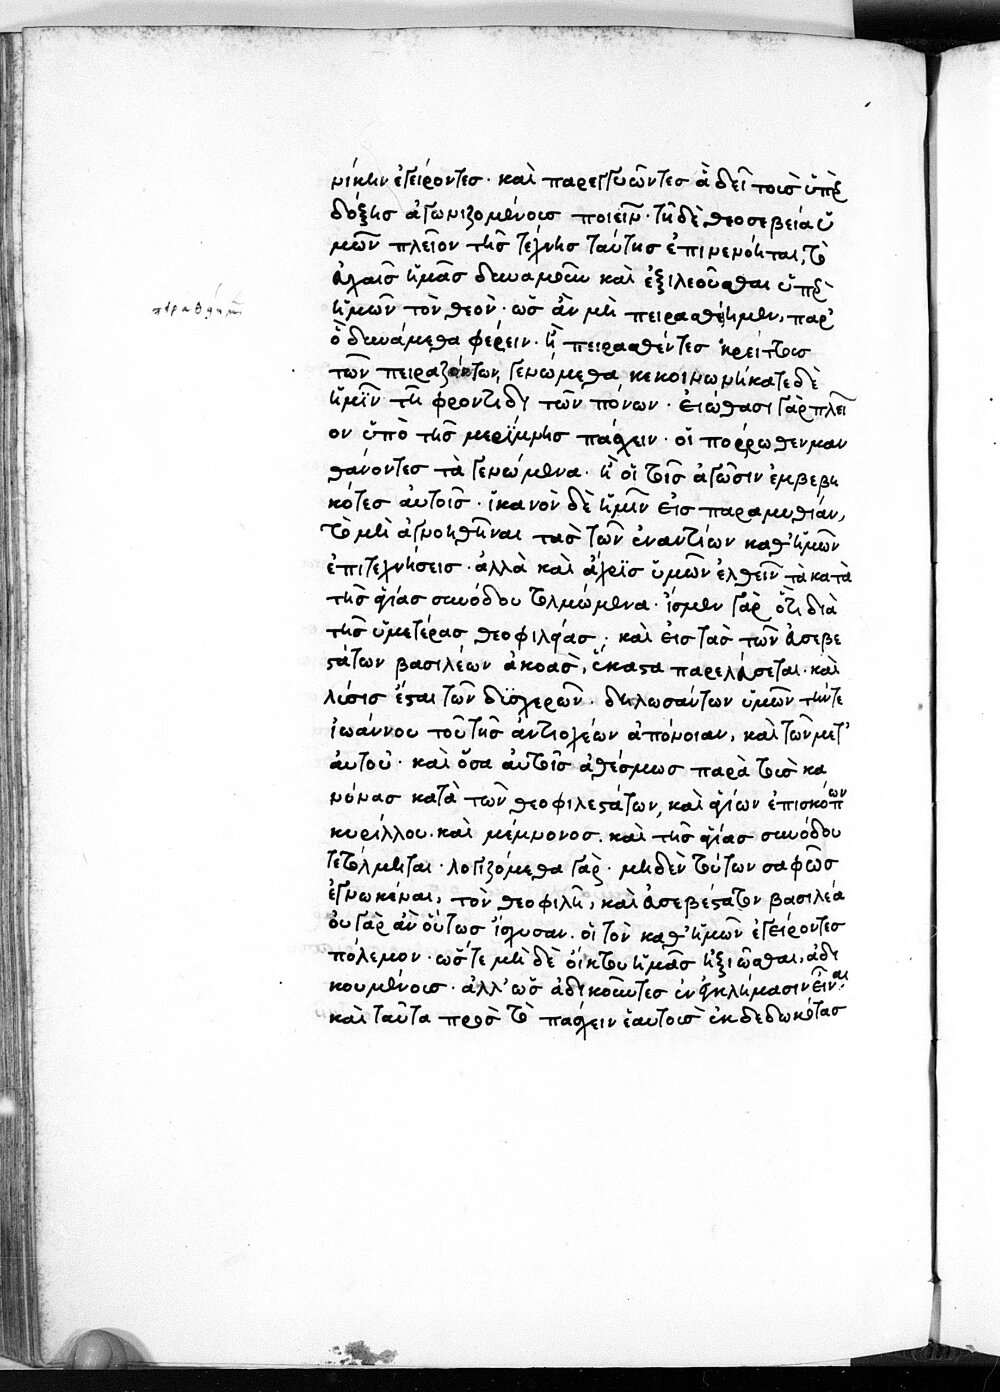 νίκην ἐγείροντες· καὶ παρεγγυῶντες ἃ δεῖ τοῖς ὑπὲρ
δόξης ἀγωνιζομένοις ποιεῖν· τῇ δὲ θεοσεβείᾳ ὑ
μῶν πλεῖον τῆς τέχνης ταύτης ἐπινενόηται, τὸ
εὐχαῖς ἡμᾶς δυναμοῦν καὶ ἐξιλεοῦσθαι ὑπὲρ
ἡμῶν τὸν θεὸν· ὡς ἂν μὴ πειρασθείημεν, παρ'
πειρασθῆναι
ὃ δυνάμεθα φέρειν· ἢ πειρασθέντες κρείττους
τῶν πειραζόντων γενώμεθα, κεκοινωνήκατε δὲ
ἡμῖν τῇ φροντίδι τῶν πόνων· εἰώθασι γὰρ πλεῖ
ον ὑπὸ τῆς μερίμνης πάσχειν· οἱ πόρρωθεν μαν
θάνοντες τὰ γενόμενα· ἢ οἱ τοῖς ἀγῶσιν ἐμβεβη
κότες αὐτοῖς· ἱκανὸν δὲ ἡμῖν εἰς παραμυθίαν,
τὸ μὴ ἀγνοηθῆναι τὰς τῶν ἐναντίων καθ' ἡμῶν
ἐπιτεχνήσεις· ἀλλὰ καὶ ἄχρις ὑμῶν ἐλθεῖν τὰ κατὰ
τῆς ἁγίας συνόδου τολμώμενα· ἴσμεν γὰρ ὅτι διὰ
τῆς ὑμετέρας θεοφιλίας· καὶ εἰς τὰς τῶν εὐσεβε
στάτων βασιλέων ἀκοὰς, ἕκαστα παρελεύσεται· καὶ
λύσις ἔσται τῶν δυσχερῶν· δηλωσάντων ὑμῶν τήν τε
ἰωάννου τοῦ τῆς ἀντιοχέων ἀπόνοιαν, καὶ τῶν μετ'
αὐτοῦ· καὶ ὅσα αὐτοῖς ἀθέσμως παρὰ τοὺς κα
νόνας κατὰ τῶν θεοφιλεστάτων, καὶ ἁγίων ἐπισκόπων
κυρίλλου· καὶ μέμνονος· καὶ τῆς ἁγίας συνόδου
τετόλμηται· λογιζόμεθα γὰρ· μηδὲν τούτων σαφῶς
ἐγνωκέναι, τὸν θεοφιλῆ, καὶ εὐσεβέστατον βασιλέα
οὐ γὰρ ἂν οὕτως ἴσχυσαν· οἱ τὸν καθ' ἡμῶν ἐγείροντες
πόλεμον· ὥστε μὴ δὲ οἴκτου ἡμᾶς ἠξιῶσθαι, ἀδι
κουμένοις· ἀλλ' ὡς ἀδικοῦντες ἐν ἐγκλήμασιν εἶναι·
καὶ ταῦτα πρὸς τὸ πάσχειν ἑαυτοὺς ἐκδεδωκότας